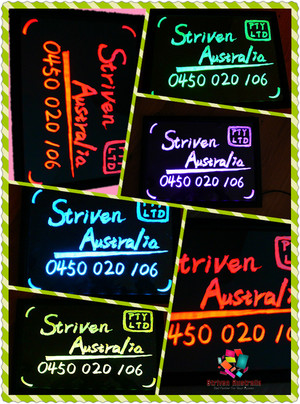 Striven PTY LTD
Australia
0450 020 106
Striven PTY LTD
Australia
0450 020 106
Striven PTY LTD
Australia
0450 020 106
Striven PTY LTD
Australia
0450 020 106
triven
Australia
0450 020 106
Striven PTY LTD
Australia
0450 020 106
Striven Australia